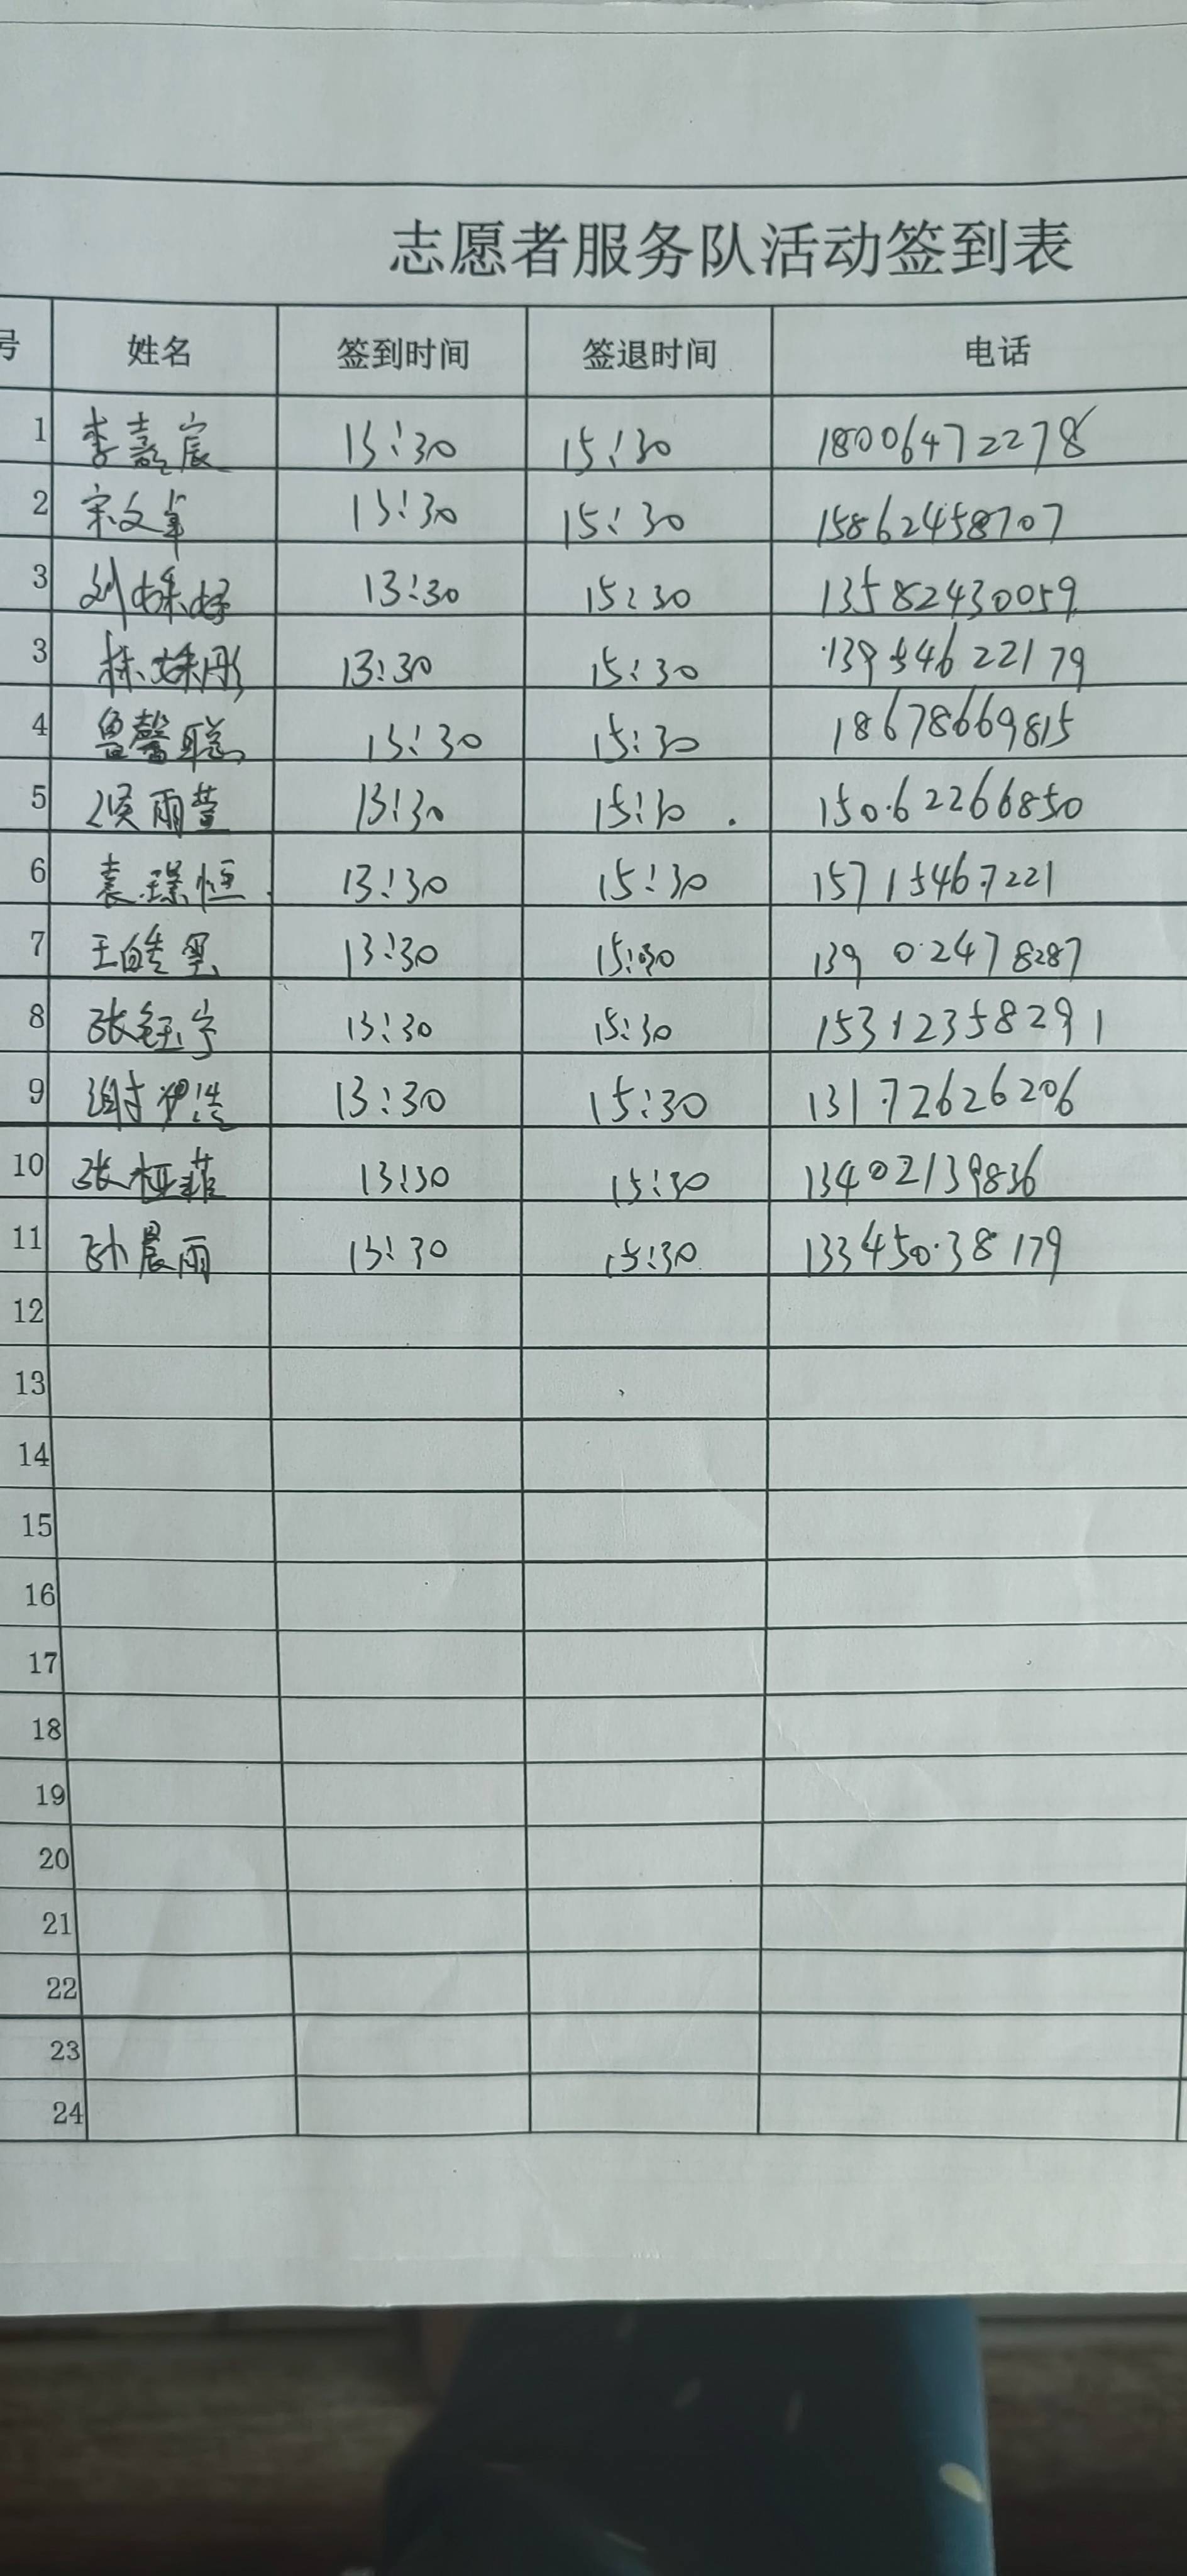 志愿者服务队活动签到表
号 姓名 签到时间 签退时间 电话
1 李嘉宸 13:30 15:30 18006472278
2 宋文军 13:30 15:30 15862458707
3 刘姝妤 13:30 15:30 13582430059
3 林姝彤 13:30 15:30 13954622179
4 鲁馨聪 13:30 15:30 18678669815
5 侯雨萱 13:30 15:30 15062266850
6 袁璟恒 13:30 15:30 15715467221
7 王皓 13:30 15:30 13902478287
8 张钰宁 13:30 15:30 15312358291
9 谢浩 13:30 15:30 13172626206
10 张桠菲 13:30 15:30 13402139836
11 孙晨雨 13:30 15:30 13345038179
12
13
14
15
16
17
18
19
20
21
22
23
24